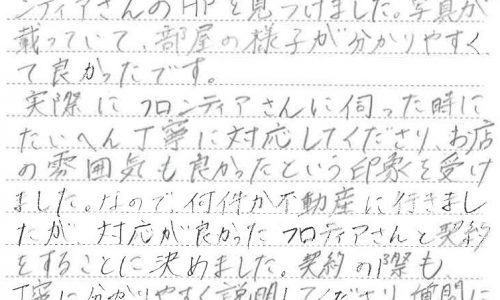 ンティアさんのHPを見つけました。写真が
載っていて、部屋の様子が分かりやすく
て良かったです。
実際にフロンティアさんに伺った時に
たいへん丁寧に対応してくださり、お店
の雰囲気も良かったという印象を受け
ました。なので、何件か不動産に行きまし
たが、対応が良かったフロティアさんと契約
をすることに決めました。契約の際も
丁寧に分かりやすく説明してくださり、質問に